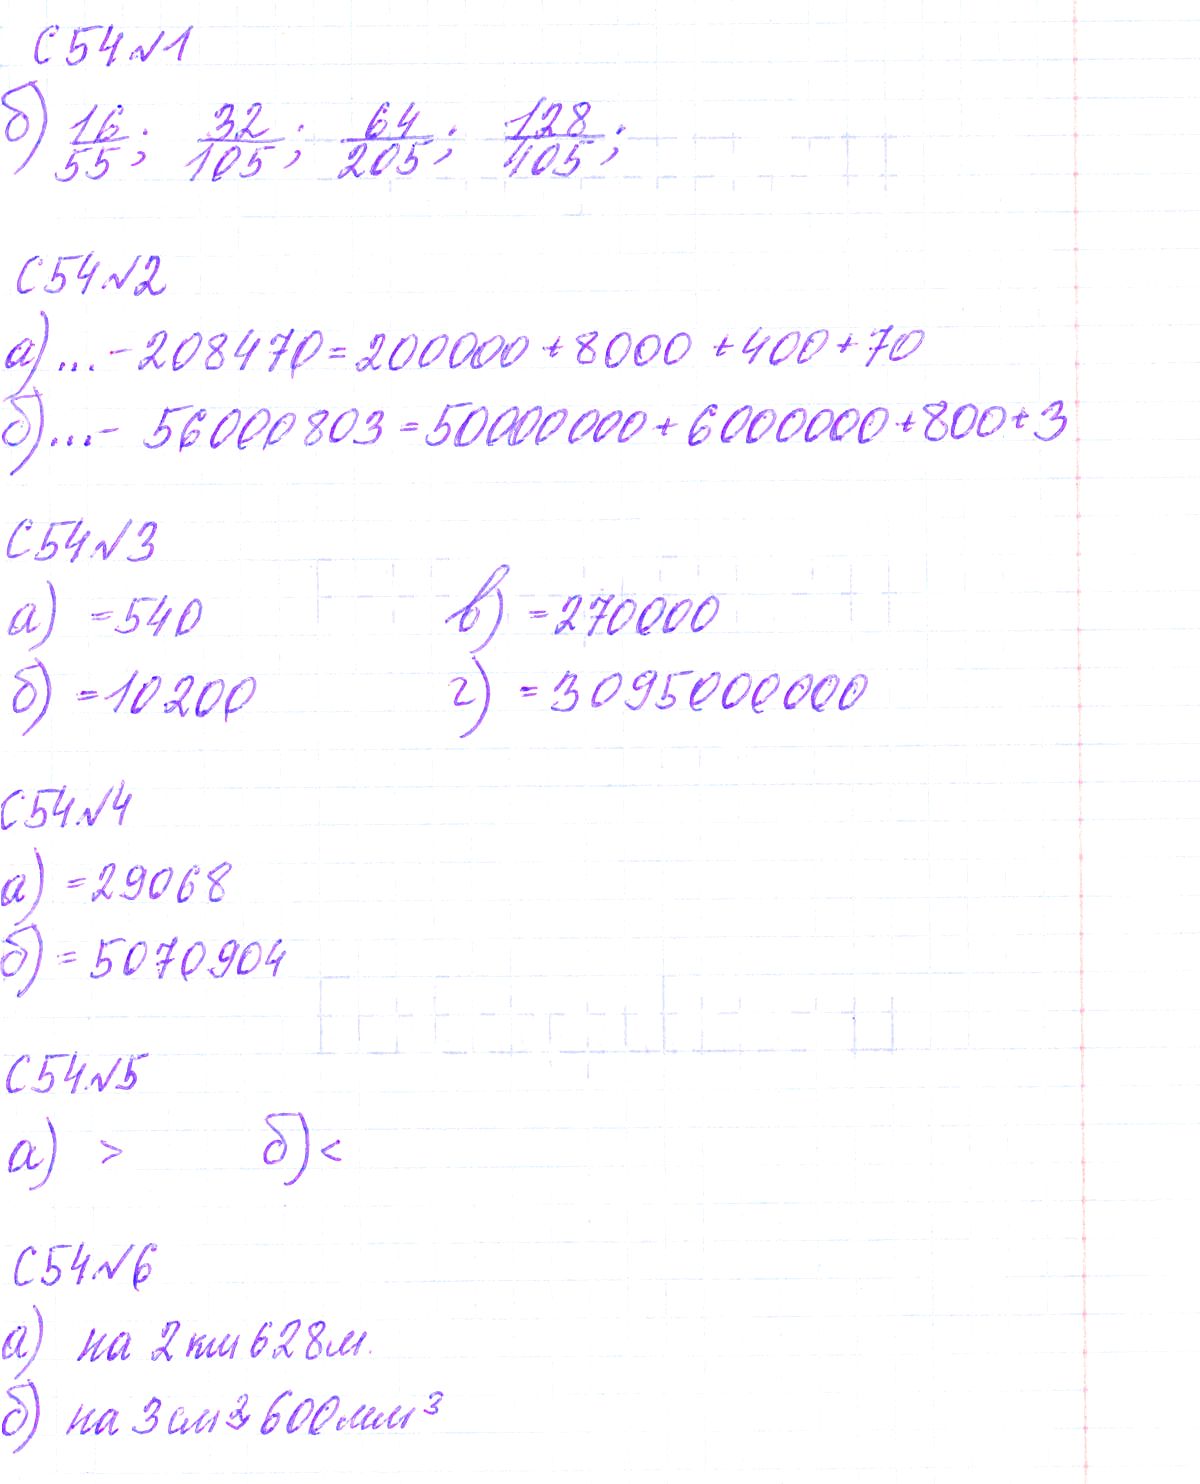 С54№1
б) 16/55; 32/105; 64/205; 128/405;
С54№2
а)...-208470=200000+8000+400+70
б)...- 56000803=50000000+6000000+800+3
С54№3
а) =540 в) =270000
б) =10200 г) =3095000000
С54№4
а) =29068
б) =5070904
С54№5
а) > б) <
С54№6
а) на 2км 628м.
б) на 3см³ 600мм³